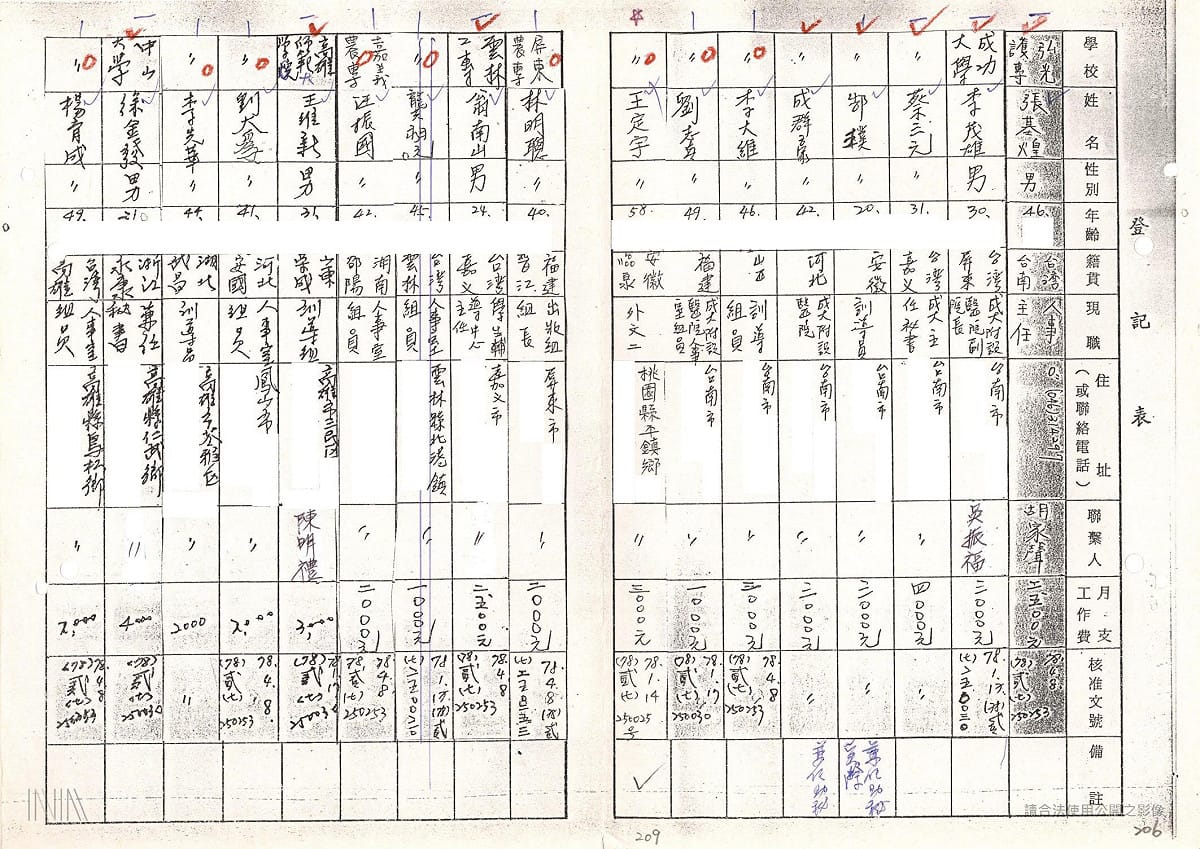 登記表
學校 姓名 性別 年齡 籍貫 現職 住址（或聯絡電話） 聯繫人 月支工作費 核准文號 備註
弘光護專 張基煌 男 46. 台灣台南 人事主任 胡家聲 二五00元 (78) 78.4.8. 貳(七) 250253
成功大學 李茂雄 男 30. 台灣屏東 成大附設醫院副院長 台南市 吳振福 二000元 78.1.17.(78)貳(七)二五00三0
〃 蔡三元 〃 31. 台灣嘉義 成大主任秘書 台南市 〃 四000元
〃 鄒樸 〃 20. 安徽 訓導員 台南市 〃 二000元
〃 成群豪 〃 42. 河北 成大附設醫院 台南市 〃 三000元 〃
〃 李大維 〃 46. 山西 訓導組員 台南市 〃 三000元 78.4.8 (78)貳(七) 250253
〃 劉志貴 〃 49. 福建 成大附設醫院人事室組員 台南市 〃 一000元 78.1.17 (78)貳(七) 250030
〃 王定宇 〃 58. 安徽 外文二 桃園縣平鎮鄉 〃 三000元 78.1.14 (78)貳(七) 250025号
屏東農專 林明聰 〃 40. 福建晋江 出版組組長 屏東市 〃 二000元 78.4.8(78)貳(七)二五0二五三
雲林工專 翁南山 男 24. 台灣嘉义 學生輔導中心主任 嘉义市 〃 二五00元 78.4.8 (78)貳(七) 250253
〃 〃 45. 台灣雲林 人事室組員 雲林縣北港鎮 〃 一000元 78.1.17(78)貳(七)二五00三0
嘉義農專 汪振國 〃 42. 湖南邵陽 人事室組員 〃 二000元 78.4.8 (78)貳(七) 250253
高雄師範大學學院 王維新 男 31. 山東榮成 訓導組 高雄市三民區 陳明禮 3,000 78.1.17 (78)貳(七) 250030
〃 劉大爲 〃 41. 河北安國 人事室組員 鳳山市 〃 2,000 78.4.8. (78)貳(七) 250253
〃 李先華 〃 44. 湖北武昌 訓導員 高雄市苓雅區 〃 2000 〃
中山大學 徐金發 男 浙江永康 兼任秘書 高雄縣仁武鄉 〃 4000 (78)貳(七) 250030
〃 楊育成 〃 49. 台灣高雄 人事室組員 高雄縣鳥松鄉 〃 2,000 78.4.8 (78)貳(七) 250253
209
206
請合法使用公開之影像